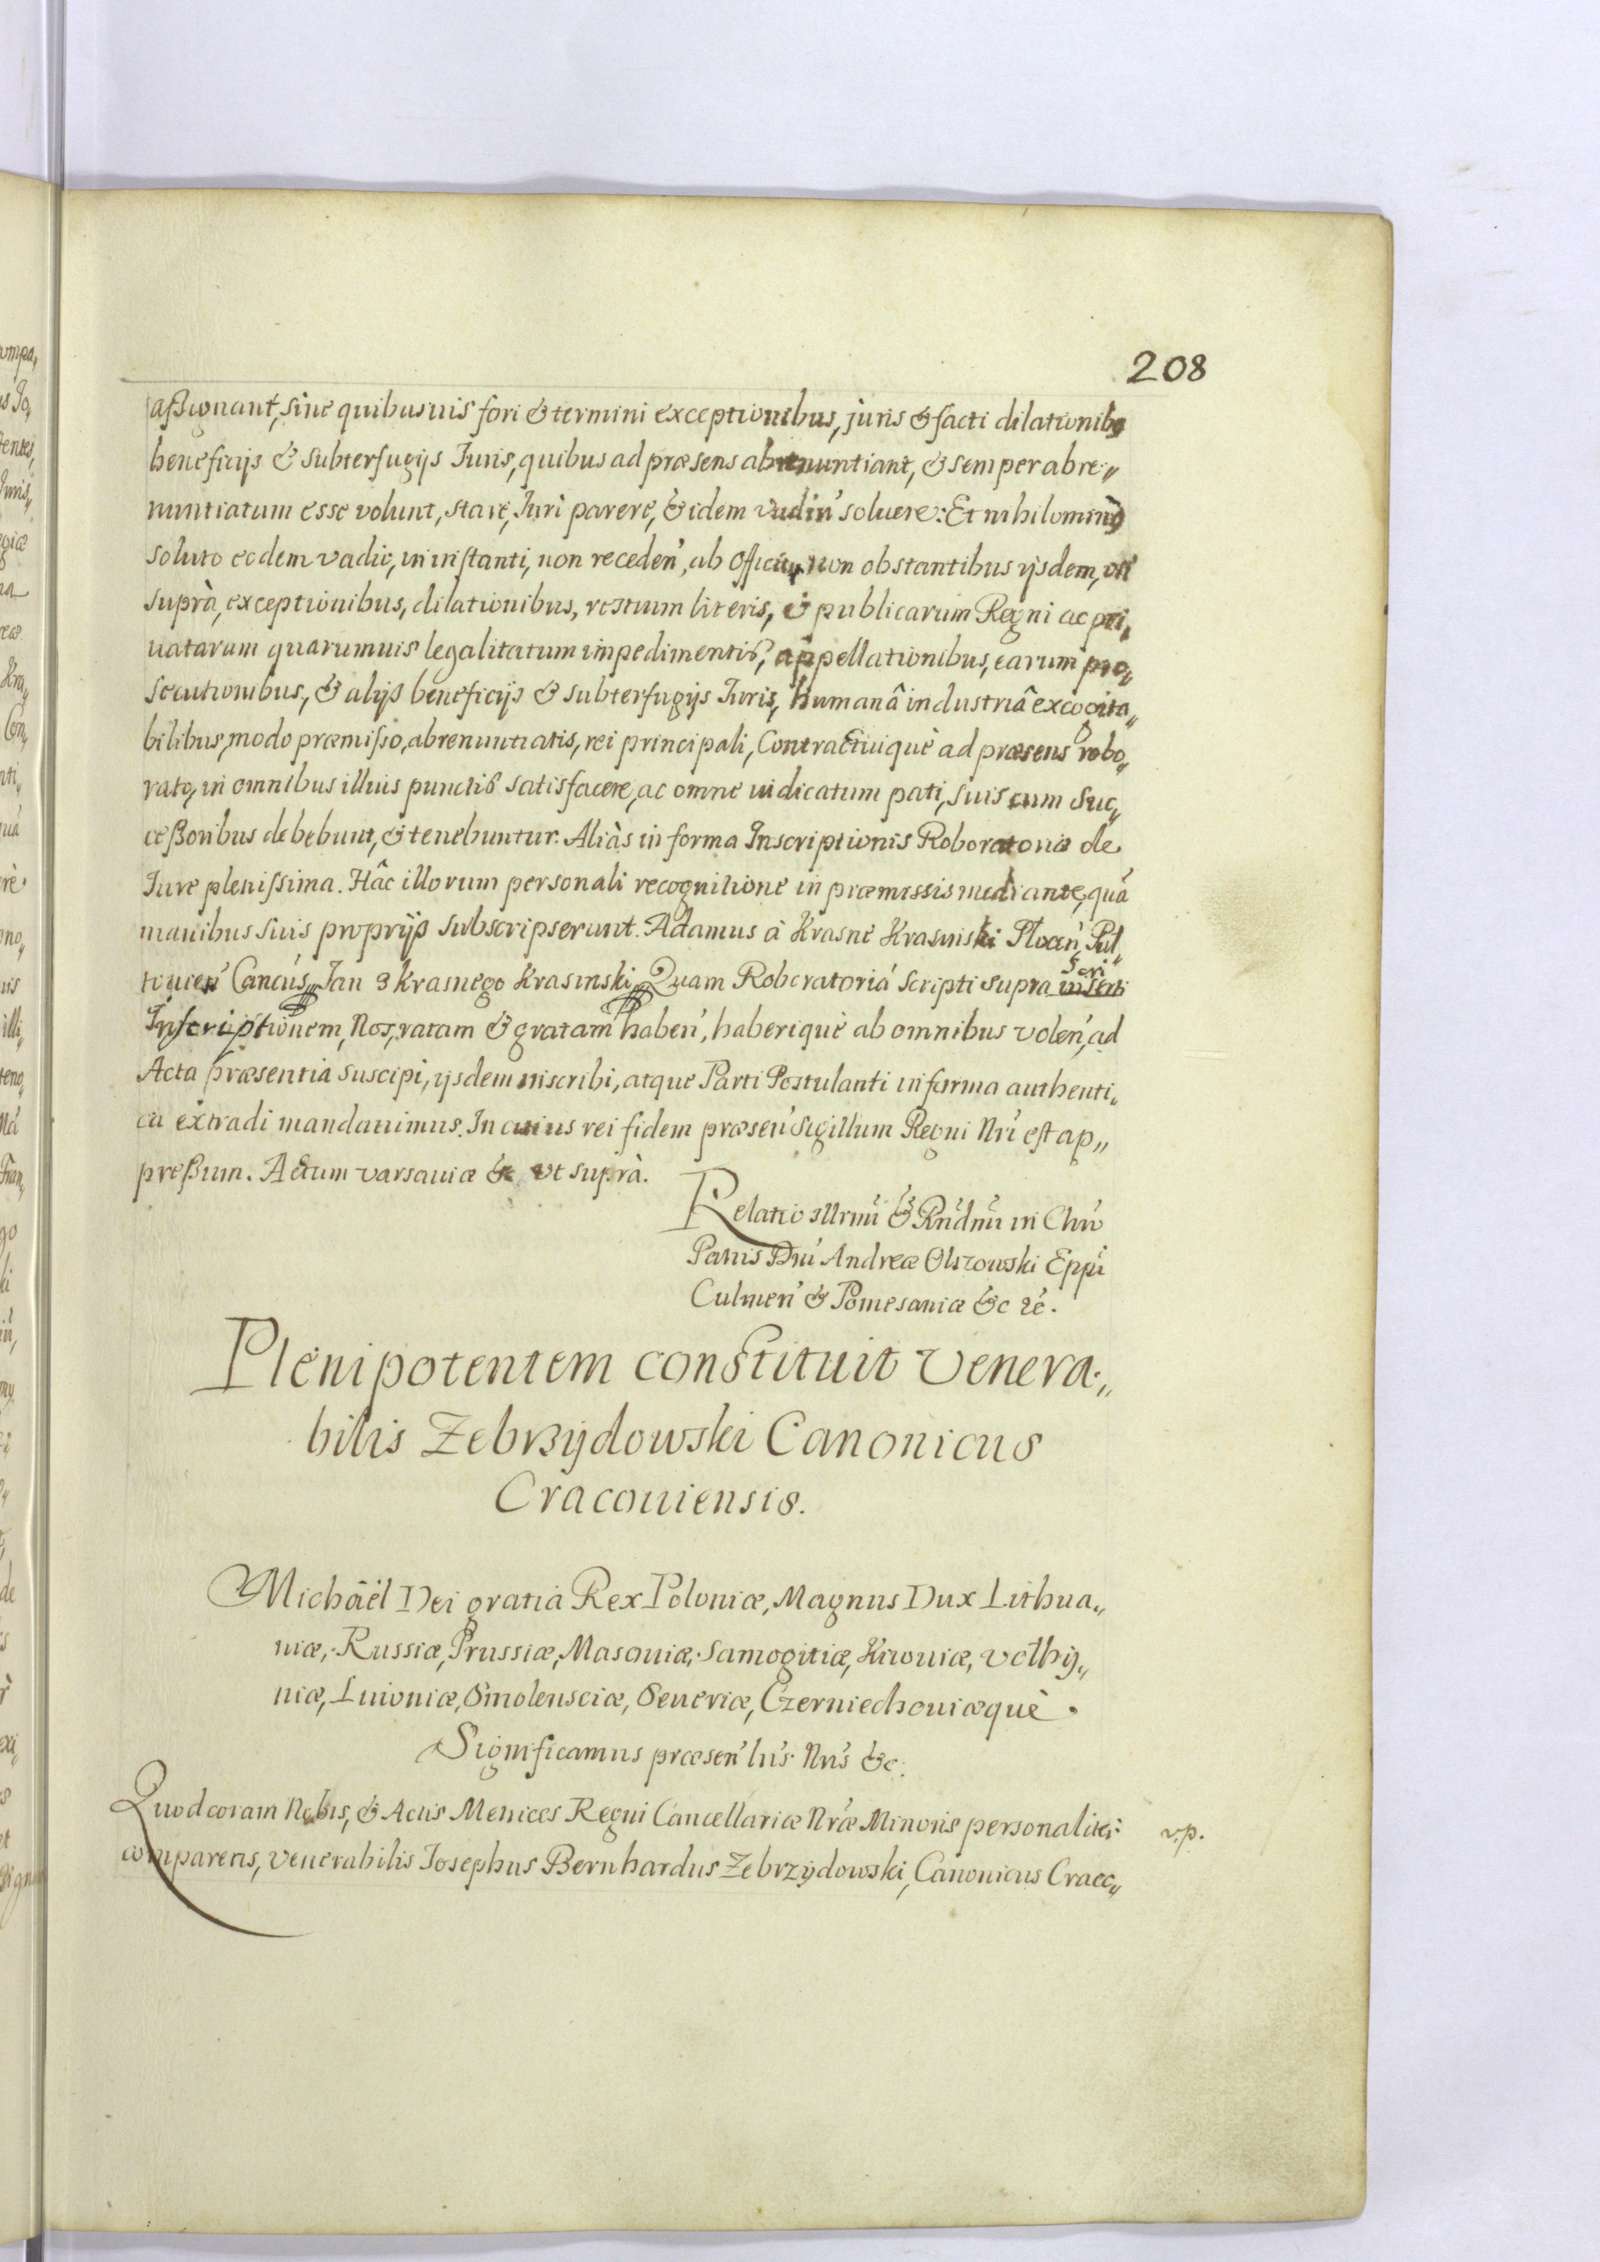 208
aßignant, sine quibusuis fori & termini exceptionibus, juris & facti dilationibq
beneficijs & subterfugijs Iuris, quibus ad præsens abrenuntiant, & semper abre„
nuntiatum esse volunt, stare, Iuri parere, & idem vadiu' soluere: Et nihilominq
soluto eodem vadio, in instanti, non receden', ab officio, non obstantibus ijsdem, uti
suprà, exceptionibus, dilationibus, rerum literis, & publicarum Regni ac pri„
uatarum quarumuis legalitatum impedimentis, appellationibus, earum pro„
secutionibus, & alijs beneficijs & subterfugijs Iuris, humanâ industriâ excogita„
bilibus, modo præmisso, abrenuntiatis, rei principali, Contractuiquè ad præsens robo„
rato, in omnibus illius punctis satisfacere, ac omne iudicatum pati, suis cum Suc„
ceßoribus debebunt, & tenebuntur. Aliàs in forma Inscriptionis Roboratoria de
Iure plenissima. Hâc illorum personali recognitione in præmissis mediante, quà
manibus suis proprijs subscripserunt. Adamus à Krasne Krasinski Plocen', Pul„
touien' Cancús, Jan 3 Krasnego Krasinski, Quam Roboratoriá Scripti supra inserti
seri
Inscriptionem, Nos, ratam & gratam haben', haberiquè ab omnibus volen', ad
Acta præsentia suscipi, ijsdem inscribi, atque Parti Postulanti in forma authenti„
ca extradi mandauimus. In cuius rei fidem præsen' Sigillum Regni Nri est ap„
preßum. Actum varsauiæ & ut suprà.
Relatio Illrmi & Rndmi in Chro
Patris Dni Andreæ Olszowski Eppi
Culmen' & Pomesaniæ &c &c.
Plenipotentem constituit Venera„
bilis Zebrzydowski Canonicus
Cracouiensis.
Michäël Dei gratia Rex Poloniæ, Magnus Dux Lithua„
niæ, Russiæ, Prussiæ, Masouiæ, Samogitiæ, Kiiouiæ, Volhy„
niæ, Liuoniæ, Smolensciæ, Seueriæ, Czerniechouiæquè.
Significamus præsen' lris Nris &c.
Quod coram Nobis, & Actis Metrices Regni Cancellariæ Nræ Minoris personaliter v.p.
comparens, venerabilis Iosephus Bernhardus Zebrzydowski, Canonicus Craco„